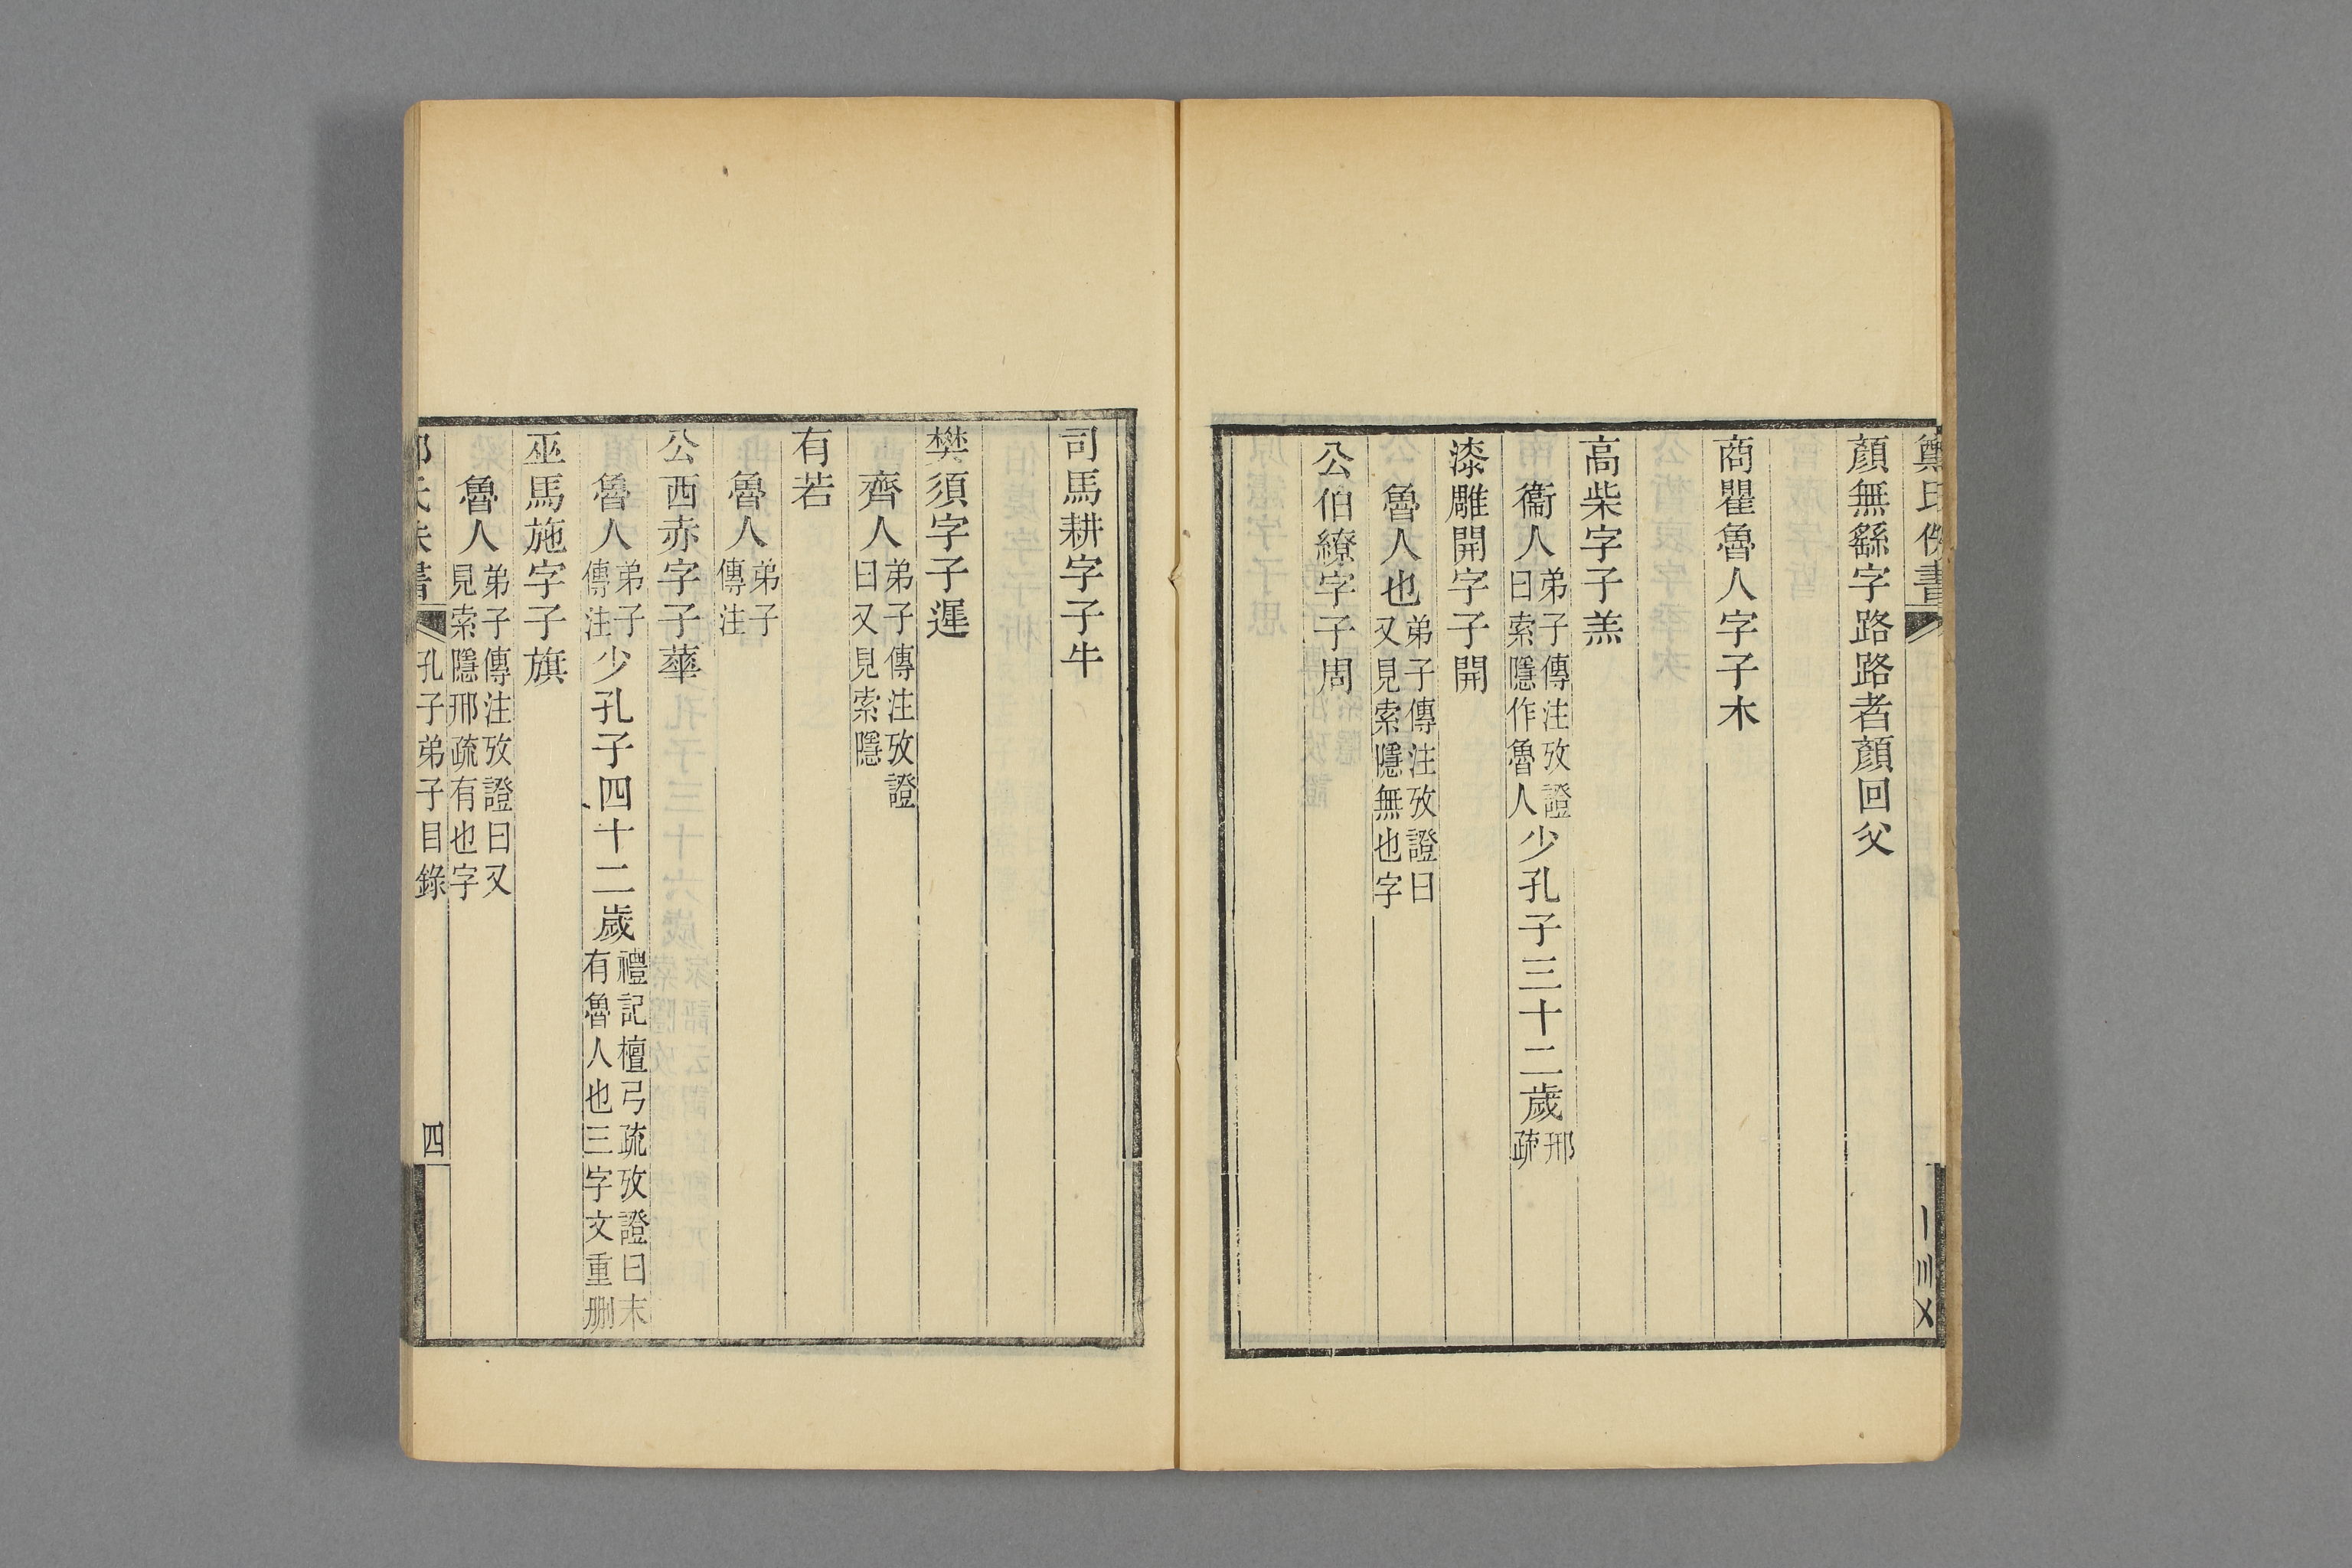 顏無繇字路路者顏回父
商瞿魯人字子木
高柴字子羔
衞人弟子傳注攷證曰索隱作魯人少孔子三十二歲邢疏
漆雕開字子開
魯人也弟子傳注攷證曰又見索隱無也字
公伯繚字子周
司馬耕字子牛
樊須字子遲
齊人弟子傳注攷證曰又見索隱
有若
魯人弟子傳注
公西赤字子華
魯人弟子傳注少孔子四十二歲禮記檀弓疏攷證曰末有魯人也三字文重刪
巫馬施字子旗
魯人弟子傳注攷證曰又見索隱邢疏有也字
孔子弟子目錄
四